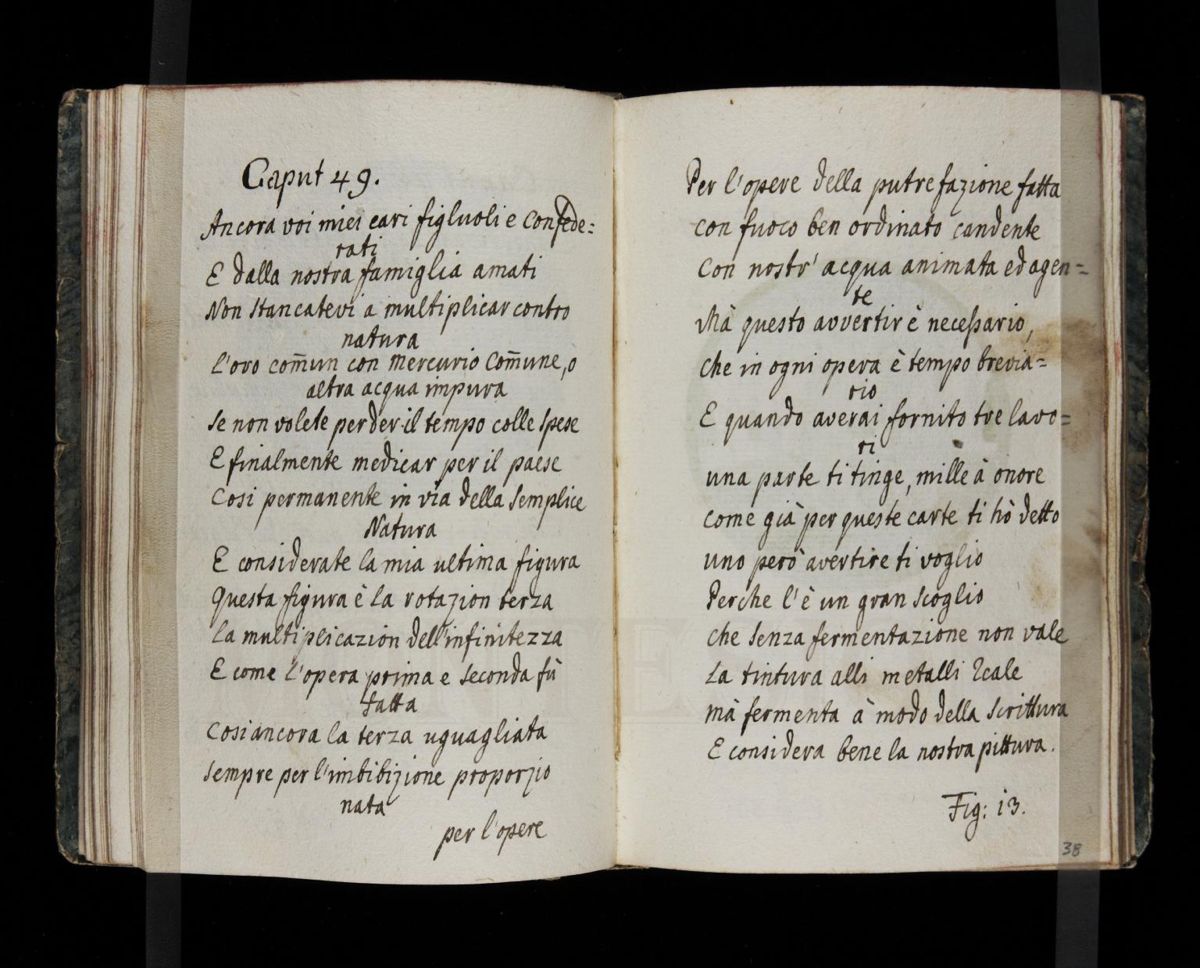 Caput 49.
Ancora voi miei cari figluoli e Confede=
rati
E dalla nostra famiglia amati
Non stancatevi a multiplicar contro
natura
L'oro com̄un con mercurio Com̄une, o
altra acqua impura
Se non volete perder il tempo colle spese
E finalmente medicar per il paese
Cosi permanente in via della Semplice
Natura
E considerate la mia ultima figura
Questa figura è la rotazion terza
La multiplicazion dell'infinitezza
E come l'opera prima e seconda fù
fatta
Cosi ancora la terza uguagliata
Sempre per l'imbibizione proporzio
nata
per l'opere
Per l'opere della putrefazione fatta
con fuoco ben ordinato candente
Con nostr' acqua animata ed agen=
te
Mà questo avvertir è necessario,
che in ogni opera è tempo brevia=
rio
E quando averai fornito tre lavo=
ri
una parte ti tinge, mille à onore
come già per queste carte ti hò detto
uno però avertire ti voglio
Perche l'è un gran scoglio
che senza fermentazione non vale
La tintura alli metalli Reale
mà fermenta à modo della Scrittura
E considera bene la nostra pittura.
Fig: 13.
38